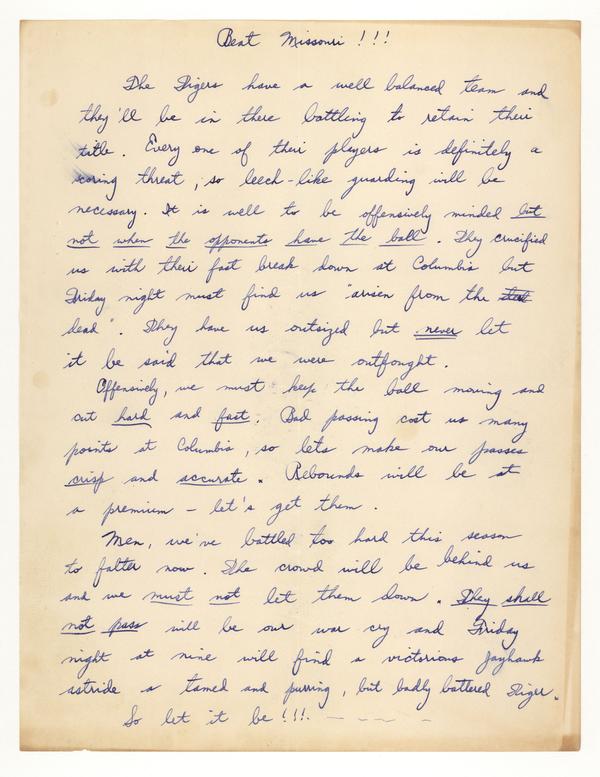 Beat Missouri !!!
The Tigers have a well balanced team and
they'll be in there battling to retain their
title. Every one of their players is definitely a
scoring threat, so leech-like guarding will be
necessary. It is well to be offensively minded but
not when the opponents have the ball. They crucified
us with their fast break down at Columbia but
Friday night must find us "arisen from the
dead". They have us outsized but never let
it be said that we were outfought.
Offensively, we must keep the ball moving and
cut hard and fast. Bad passing cost us many
points at Columbia, so lets make our passes
crisp and accurate. Rebounds will be at
a premium - let's get them.
Men, we've battled too hard this season
to falter now. The crowd will be behind us
and we must not let them down. They shall
not pass will be our war cry and Friday
night at nine will find a victorious Jayhawk
astride a tamed and purring, but badly battered Tiger.
So let it be !!!